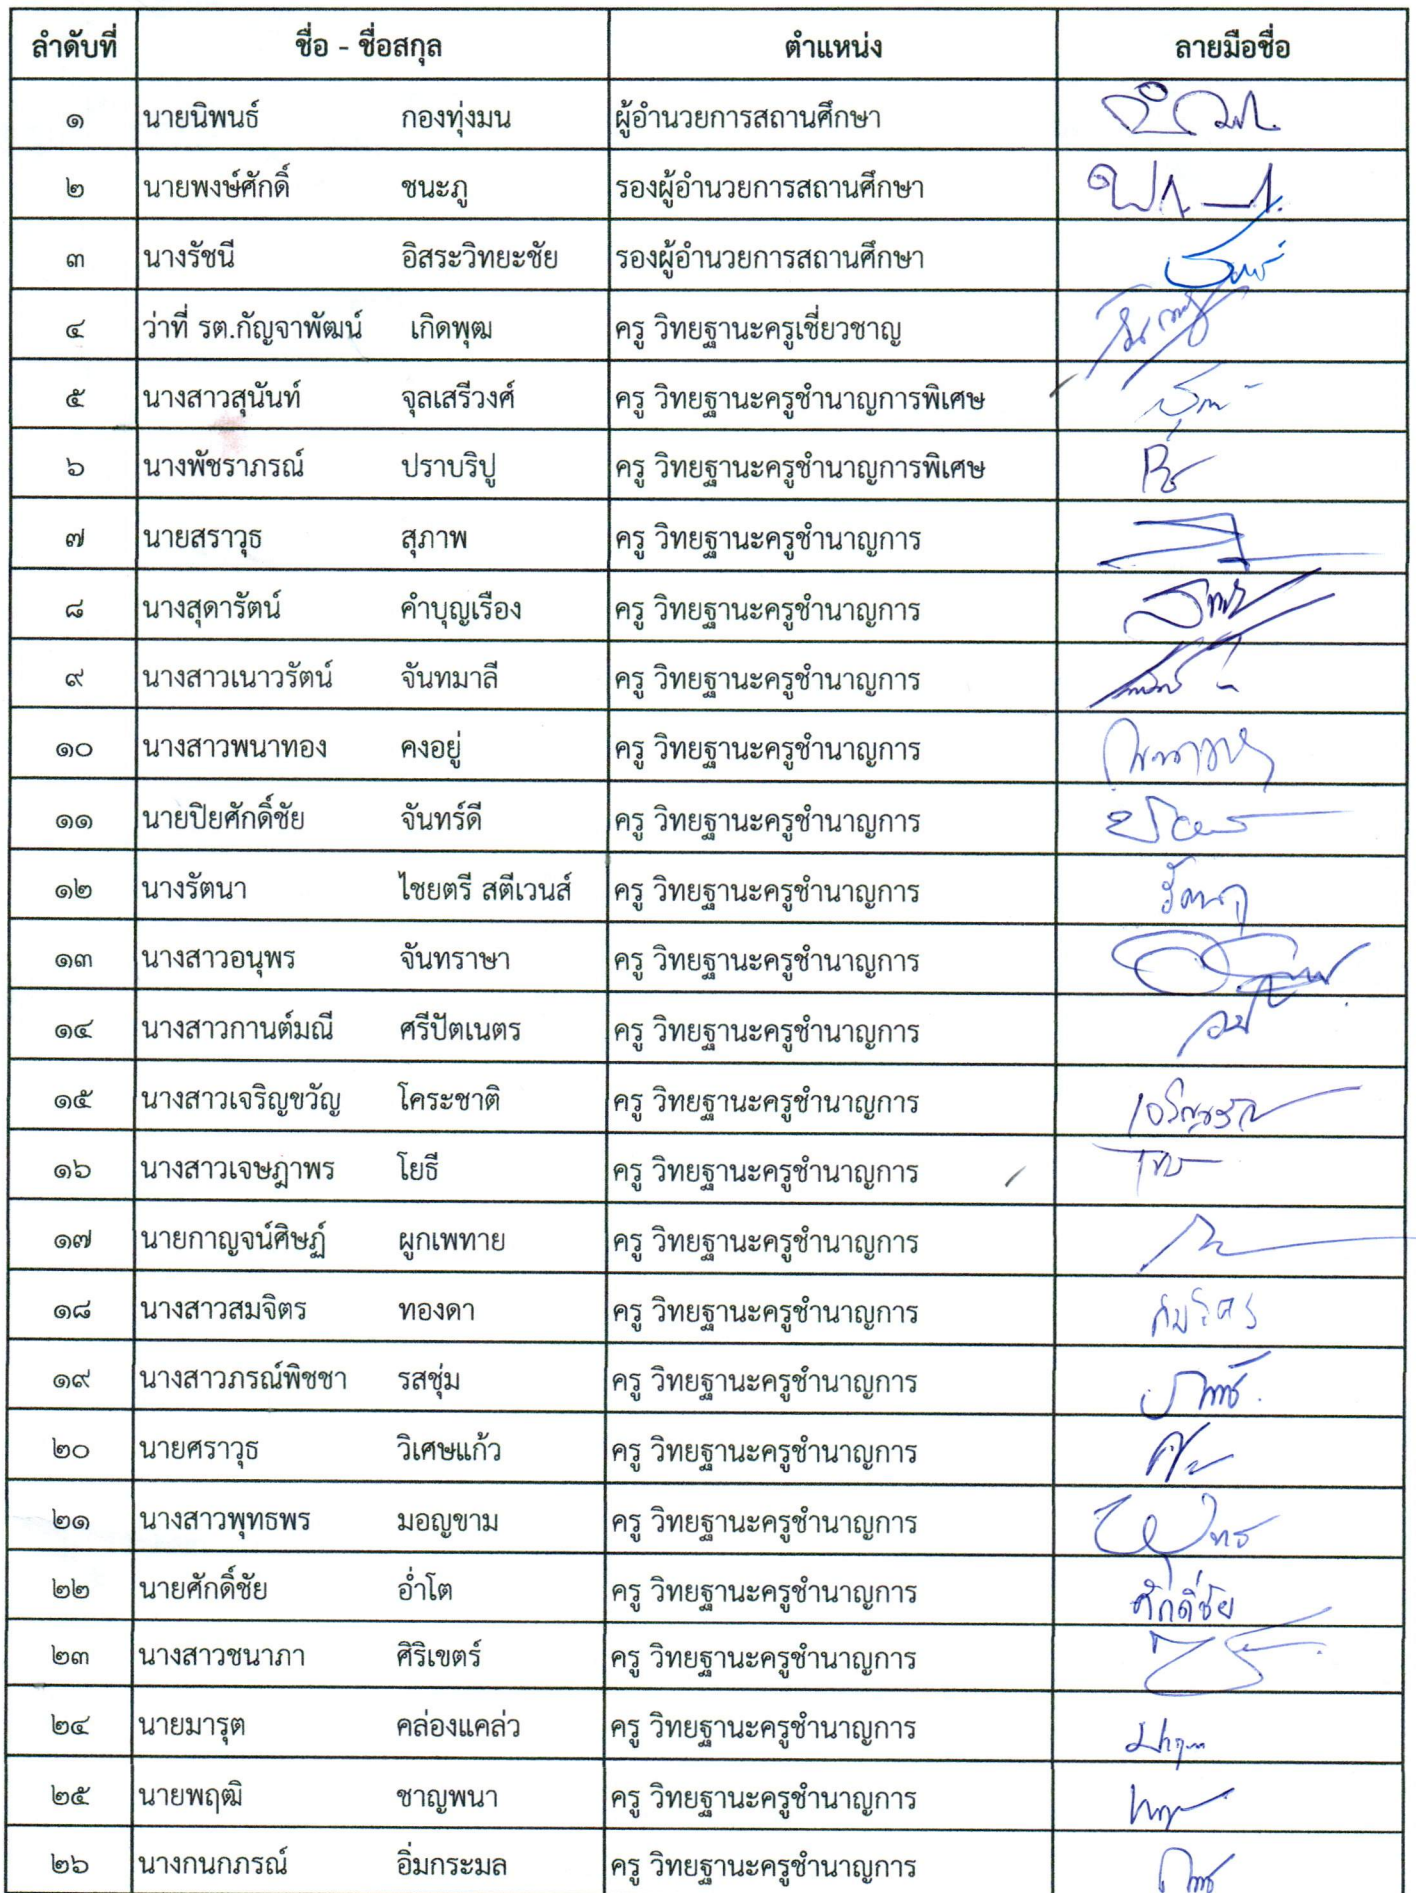 ลำดับที่ ชื่อ - ชื่อสกุล ตำแหน่ง ลายมือชื่อ
๑ นายนิพนธ์ กองทุ่งมน ผู้อำนวยการสถานศึกษา
๒ นายพงษ์ศักดิ์ ชนะภู รองผู้อำนวยการสถานศึกษา
๓ นางรัชนี อิสระวิทยะชัย รองผู้อำนวยการสถานศึกษา
๔ ว่าที่ รต.กัญจาพัฒน์ เกิดพุฒ ครู วิทยฐานะครูเชี่ยวชาญ
๕ นางสาวสุนันท์ จุลเสรีวงศ์ ครู วิทยฐานะครูชำนาญการพิเศษ
๖ นางพัชราภรณ์ ปราบริปู ครู วิทยฐานะครูชำนาญการพิเศษ
๗ นายสราวุธ สุภาพ ครู วิทยฐานะครูชำนาญการ
๘ นางสุดารัตน์ คำบุญเรือง ครู วิทยฐานะครูชำนาญการ
๙ นางสาวเนาวรัตน์ จันทมาลี ครู วิทยฐานะครูชำนาญการ
๑๐ นางสาวพนาทอง คงอยู่ ครู วิทยฐานะครูชำนาญการ
๑๑ นายปิยศักดิ์ชัย จันทร์ดี ครู วิทยฐานะครูชำนาญการ
๑๒ นางรัตนา ไชยตรี สตีเวนส์ ครู วิทยฐานะครูชำนาญการ
๑๓ นางสาวอนุพร จันทราษา ครู วิทยฐานะครูชำนาญการ
๑๔ นางสาวกานต์มณี ศรีปัตเนตร ครู วิทยฐานะครูชำนาญการ
๑๕ นางสาวเจริญขวัญ โคระชาติ ครู วิทยฐานะครูชำนาญการ เจริญขวัญ
๑๖ นางสาวเจษฎาพร โยธี ครู วิทยฐานะครูชำนาญการ
๑๗ นายกาญจน์ศิษฏ์ ผูกเพทาย ครู วิทยฐานะครูชำนาญการ
๑๘ นางสาวสมจิตร ทองดา ครู วิทยฐานะครูชำนาญการ สมจิตร
๑๙ นางสาวภรณ์พิชชา รสชุ่ม ครู วิทยฐานะครูชำนาญการ
๒๐ นายศราวุธ วิเศษแก้ว ครู วิทยฐานะครูชำนาญการ
๒๑ นางสาวพุทธพร มอญขาม ครู วิทยฐานะครูชำนาญการ
๒๒ นายศักดิ์ชัย อ่ำโต ครู วิทยฐานะครูชำนาญการ ศักดิ์ชัย
๒๓ นางสาวชนาภา ศิริเขตร์ ครู วิทยฐานะครูชำนาญการ
๒๔ นายมารุต คล่องแคล่ว ครู วิทยฐานะครูชำนาญการ
๒๕ นายพฤฒิ ชาญพนา ครู วิทยฐานะครูชำนาญการ
๒๖ นางกนกภรณ์ อิ่มกระมล ครู วิทยฐานะครูชำนาญการ